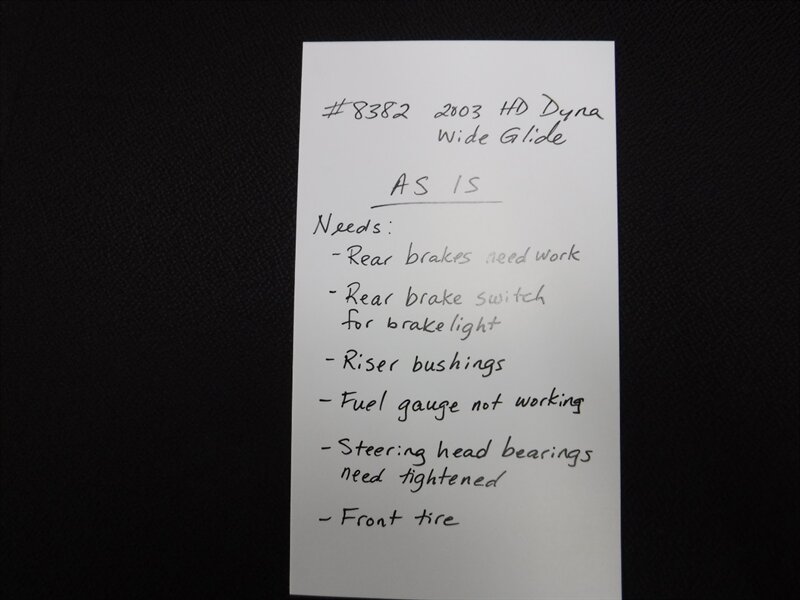 #8382 2003 HD Dyna
Wide Glide
AS IS
Needs:
- Rear brakes need work
- Rear brake switch
for brakelight
- Riser bushings
- Fuel gauge not working
- Steering head bearings
need tightened
- Front tire